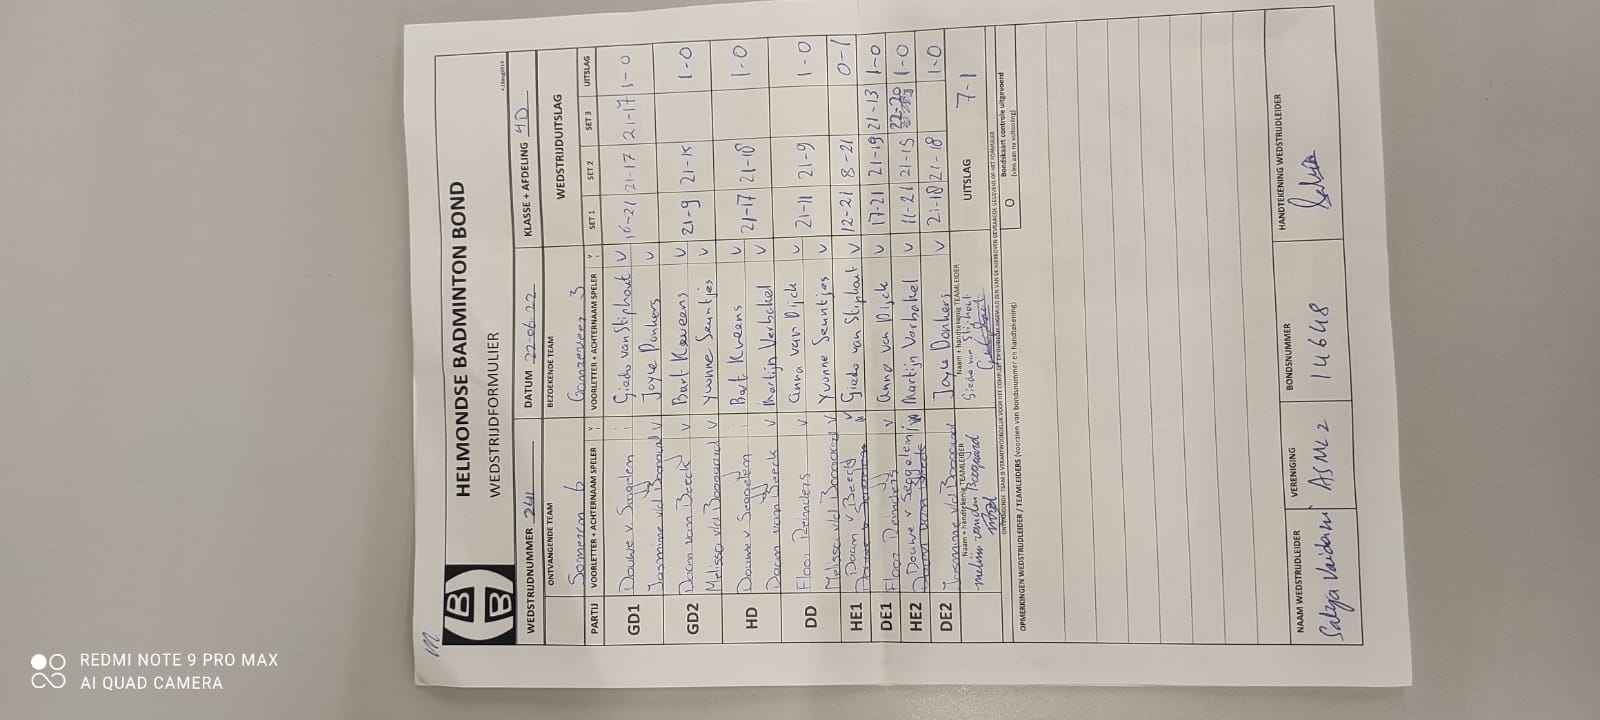 HELMONDSE BADMINTON BOND
WEDSTRIJDFORMULIER
WEDSTRIJDNUMMER 241 DATUM 22-06-22 KLASSE + AFDELING 4D
ONTVANGENDE TEAM BEZOEKENDE TEAM WEDSTRIJDUITSLAG
Someren 6 Ganzeveer 3
PARTIJ VOORLETTER + ACHTERNAAM SPELER V VOORLETTER + ACHTERNAAM SPELER V SET 1 SET 2 SET 3 UITSLAG
GD1 Douwe v. Giedo van Stiphout V 16-21 21-17 21-17 1-0
Jasmine V Joyce Donkers V
GD2 Daan van Beeck V Bart Kweens V 21-9 21-15 1-0
Melissa vd Boogaard V Yvonne Seuntjes V
HD Douwe v Seggelen Bart Kveens V 21-17 21-18 1-0
Daan van Beeck V Martijn Verbakel V
DD Floor Reinders V anna van Dijck V 21-11 21-9 1-0
Melissa vd Boogaard V Yvonne Seuntjes V
HE1 Daan v Beeck V Giedo van Stiphout V 12-21 8-21 0-1
DE1 Floor Reinders V anna van Dijck V 17-21 21-19 21-13 1-0
HE2 Douwe v Seggelen Martijn Verbakel V 11-21 21-15 22-20 1-0
DE2 Jasmine vd Joyce Donkers V 21-18 21-18 1-0
Naam + handtekening TEAMLEIDER Naam + handtekening TEAMLEIDER UITSLAG 7-1
van den Boogaard Giedo van Stiphout
O Bondskaart controle uitgevoerd
OPMERKINGEN WEDSTRIJDLEIDER / TEAMLEIDERS (voorzien van bondsnummer en handtekening)
NAAM WEDSTRIJDLEIDER VERENIGING BONDSNUMMER HANDTEKENING WEDSTRIJDLEIDER
Satya Vaidani ASML 2 14648
REDMI NOTE 9 PRO MAX
AI QUAD CAMERA